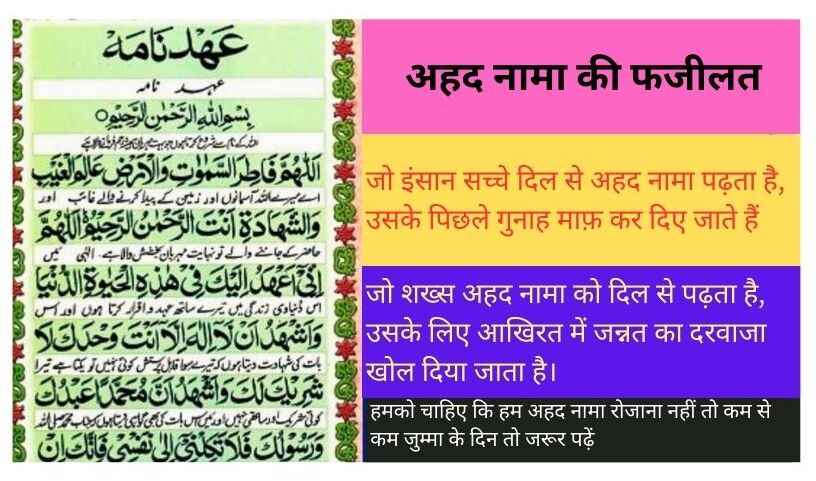 عَهْدنَامَهْ
عہد نامہ
بِسْمِ اللّٰهِ الرَّحْمٰنِ الرَّحِيْمِ
اَللّٰهُمَّ فَاطِرَ السَّمٰوٰتِ وَالْاَرْضِ عَالِمَ الْغَيْبِ
اے میرے اللہ آسمانوں اور زمین کے پیدا کرنے والے غائب اور
وَالشَّهَادَةِ اَنْتَ الرَّحْمٰنُ الرَّحِيْمُ اَللّٰهُمَّ
حاضر کے جاننے والے تو نہایت مہربان بخشش والا ہے۔ الٰہی میں
اِنِّىْ اَعْهَدُ اِلَيْكَ فِىْ هٰذِهِ الْحَيٰوةِ الدُّنْيَا
اس دنیاوی زندگی میں تیرے ساتھ عہد و اقرار کرتا ہوں اور اس
وَاَشْهَدُ اَنْ لَّا اِلٰهَ اِلَّا اَنْتَ وَحْدَكَ لَا
بات کی شہادت دیتا ہوں کہ تیرے سوا قابل پرستش کوئی نہیں تو یکتا ہے تیرا
شَرِيْكَ لَكَ وَاَشْهَدُ اَنَّ مُحَمَّدًا عَبْدُكَ
وَرَسُوْلُكَ فَلَا تَكِلْنِىْ اِلٰى نَفْسِىْ فَاِنَّكَ اِنْ
अहद नामा की फजीलत
जो इंसान सच्चे दिल से अहद नामा पढ़ता है,
उसके पिछले गुनाह माफ़ कर दिए जाते हैं
जो शख्स अहद नामा को दिल से पढ़ता है,
उसके लिए आखिरत में जन्नत का दरवाजा
खोल दिया जाता है।
हमको चाहिए कि हम अहद नामा रोजाना नहीं तो कम से
कम जुम्मा के दिन तो जरूर पढ़ें